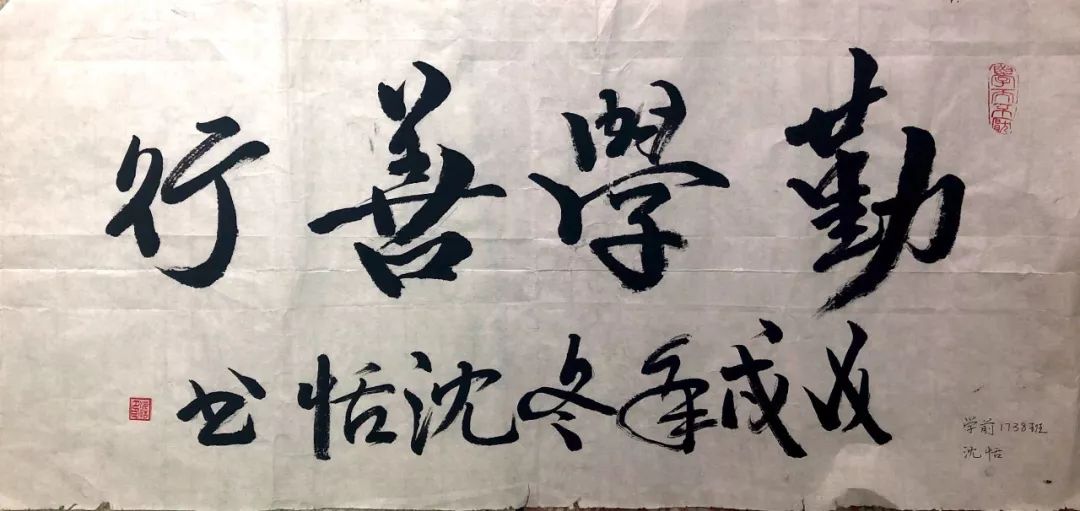 勤學善行
戊戌年冬沈恬书
学前1738班
沈恬